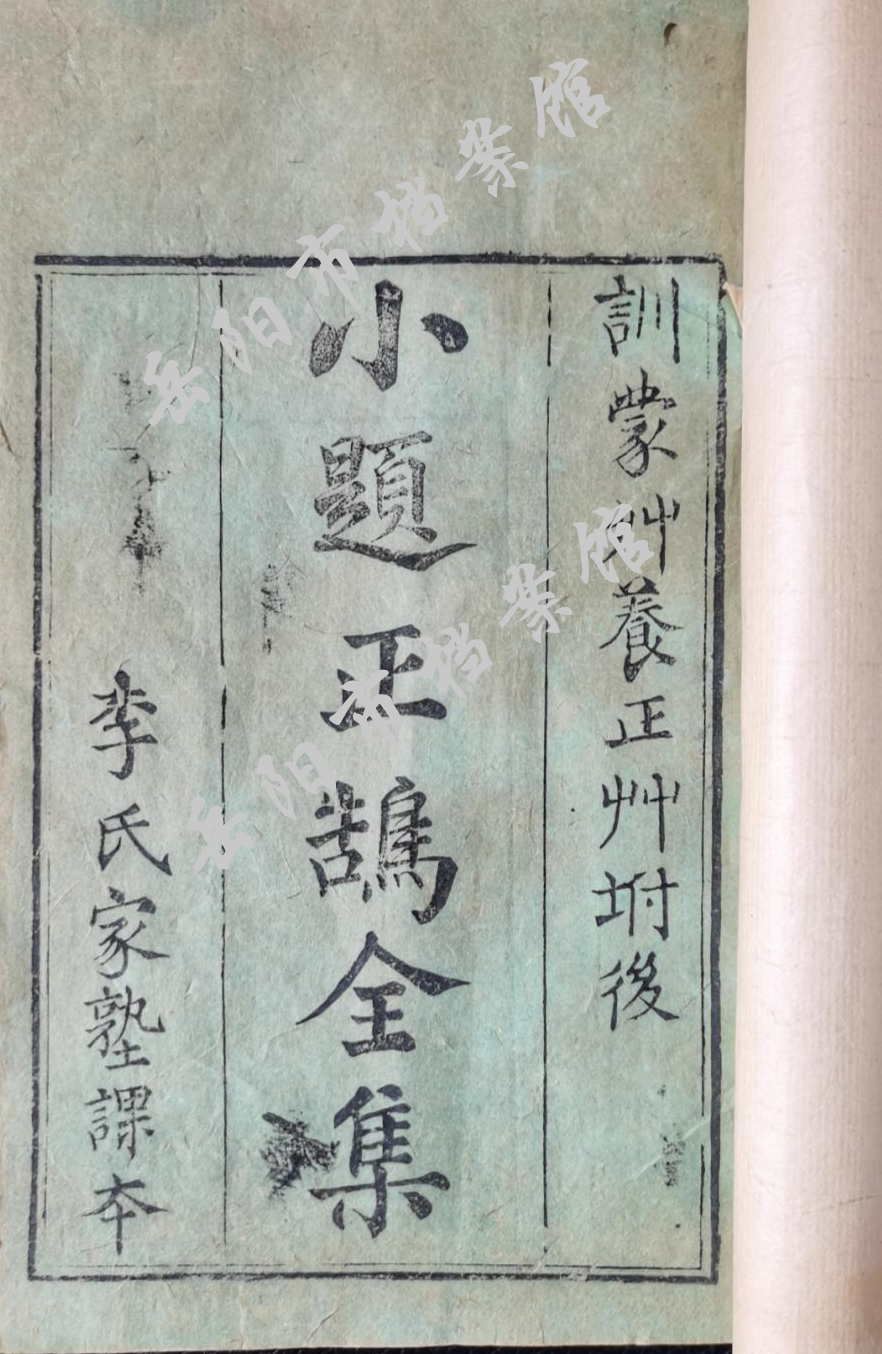 訓蒙艸養正艸坿後
小題正鵠全集
李氏家塾課本
岳阳市档案馆
岳阳市档案馆